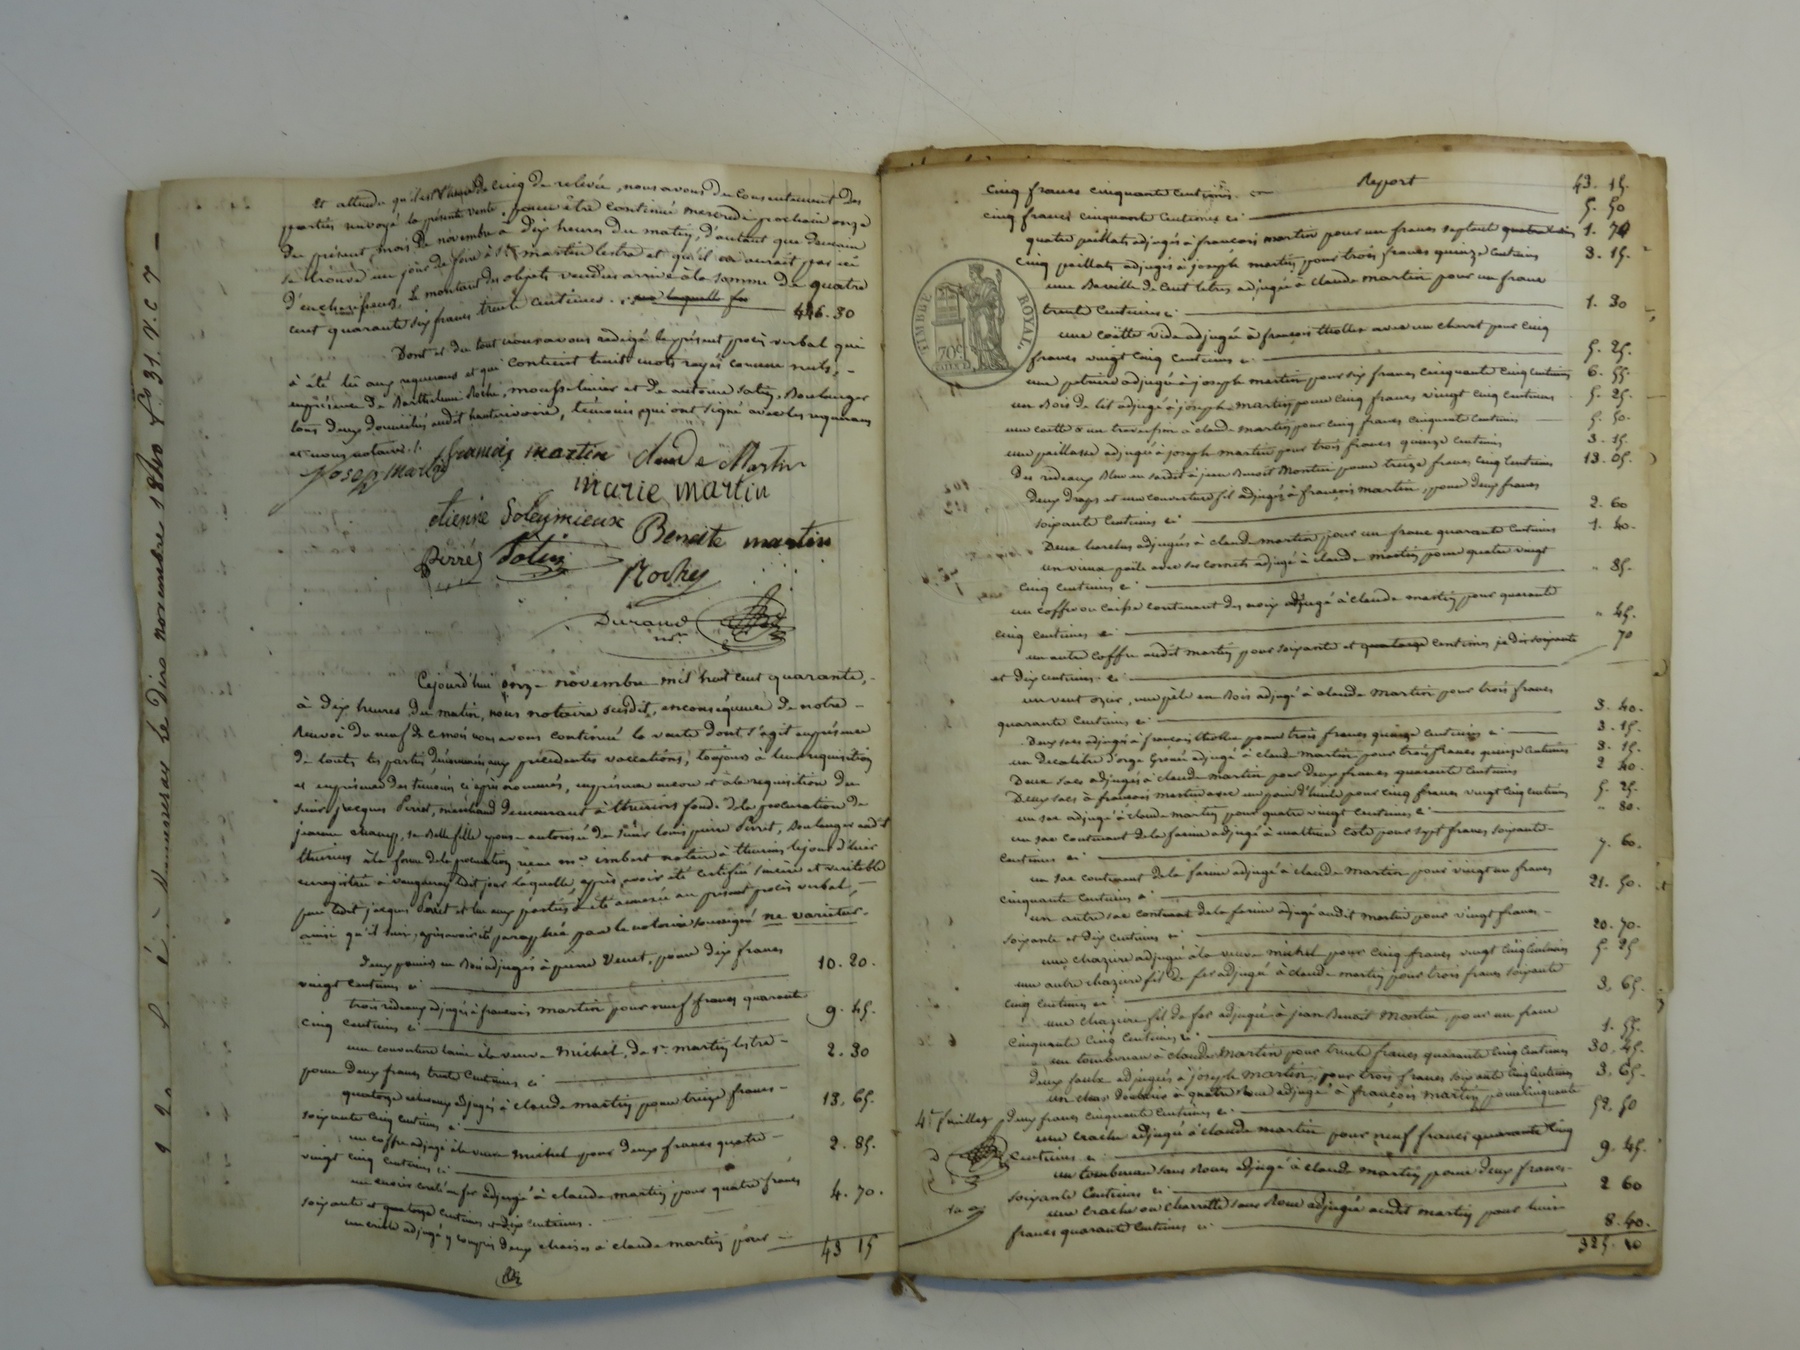 Et attendu qu'il est l'heure de cinq de relevée, nous avons du consentement des
parties renvoyé la présente vente, pour être continué mercredi prochain onze
du présent mois de novembre à dix heures du matin, d'autant que demain
se trouve un jour de foire à St martin lestra et qu'il n'y aurait pas ici
d'enchérisseurs. Le montant des objets vendus arrive à la somme de quatre
cent quarante six francs trente centimes. 446. 30
Dont et du tout nous avons redigé le présent procès verbal qui
à été lû aux requerans et qui contient huit mots rayés comme nuls,
en présence de Barthelemi Roche, mousselinier et de antoine Solin, Boulanger
tous deux domiciliés audit hauterivoire, témoins qui ont signé avec les requerans
et nous notaire
Joseph Martin françois martin claude Martin
marie martin
etienne Soleymieux Benoite martin
Perret Solin Roche
Durand
nre
Cejourd'hui onze novembre mil huit cent quarante,
à dix heures du matin, nous notaire susdit, en conséquence de notre
Renvoi du neuf de ce mois nous avons continué la vente dont s'agit en présence
de toutes les parties dénommées aux précédentes vaccations, toujours à leur requisition
et en présence des témoins ci après nommés, en présence encore et à la requisition du
sieur jacques Perret, marchand demeurant à thurins fondé de la procuration de
jeanne champ, sa Belle fille épouse autorisée de sieur louis pierre Perret, Boulanger audit
thurins à la forme de la procuration reçue me imbert notaire à thurins le jour d'hier
enregistrée à vaugneray ledit jour laquelle, après avoir été certifiée sincère et véritable
par ledit jacques Perret et lu aux parties à été annexée au présent procès verbal,
ainsi qu'il suit, après avoir été paraphée par le notaire soussigné ne varietur.
deux paniers en Bois adjugés à pierre Venet, pour dix francs
vingt centimes ci 10. 20.
trois rideaux adjugés à françois martin pour neuf francs quarante
cinq centimes ci 9. 45.
une couverture laine à la veuve michel, de St martin lestra
pour deux francs trente centimes ci 2. 30
quatorze adjugés à claude martin pour treize francs
soixante cinq centimes ci 13. 65.
un coffre adjugé à la veuve michel pour deux francs quatre
vingt cinq centimes ci 2. 85.
adjugé à claude martin pour quatre francs
soixante et centimes 4. 70.
adjugé y compris deux chaises à claude martin pour
43 15
Report 43. 15.
cinq francs cinquante centimes.
cinq francs cinquante centimes ci 5. 50
quatre paillats adjugés à françois martin pour un franc septante 1. 70
cinq paillats adjugés à joseph martin pour trois francs quinze centimes 3. 15.
une Baveille de cent litres adjugée à claude martin pour un franc
trente centimes ci 1. 30
une coëtte vide adjugée à françois thollex avec un chevet pour cinq
francs vingt cinq centimes ci 5. 25.
une adjugée à joseph martin pour six francs cinquante cinq centimes 6. 55
un Bois de lit adjugé à joseph martin pour cinq francs vingt cinq centimes 5. 25.
une coëtte & un traversin à claude martin pour cinq francs cinquante centimes 5. 50.
une paillasse adjugée à joseph martin pour trois francs quinze centimes 3. 15.
Des rideaux Bleu en cadit à jean Benoit Montin pour treize francs cinq centimes 13. 05.
deux draps et une couverture fil adjugés à françois martin, pour deux francs
soixante centimes ci 2. 60
Deux adjugés à claude martin pour un franc quarante centimes 1. 40.
un vieux poële avec ses cornets adjugé à claude martin pour quatre vingt
cinq centimes ci " 85.
un coffre ou caisse contenant des noix adjugé à claude martin pour quarante
cinq centimes ci " 45.
un autre coffre audit martin pour soixante et quatorze centimes je dis soixante
et dix centimes ci 70
un vent ozur, une pêle en Bois adjugé à claude martin pour trois francs
quarante centimes ci 3. 40.
Deux sacs adjugés à françois thollex pour trois francs quinze centimes ci 3. 15.
un Decalitre d'orge adjugé à claude martin pour trois francs quinze centimes 3. 15.
Deux sacs adjugés à claude martin pour deux francs quarante centimes 2 40.
Deux sacs à françois martin avec un pain d'huile pour cinq francs vingt cinq centimes 5. 25.
un sac adjugé à claude martin pour quatre vingt centimes ci " 80.
un sac contenant de la farine adjugé à mathieu cote pour sept francs soixante
centimes ci 7. 60.
un sac contenant de la farine adjugé à claude martin pour vingt un francs
cinquante centimes ci 21. 50.
un autre sac contenant de la farine adjugé audit martin pour vingt francs
soixante et dix centimes ci 20. 70.
une chazière adjugée à la veuve michel pour cinq francs vingt cinq centimes 5. 25
une autre chazière fil de fer adjugée à claude martin pour trois francs soixante
cinq centimes ci 3. 65.
une chazière fil de fer adjugée à jean Benoit Montin pour un franc
cinquante cinq centimes ci 1. 55.
un tombereau à claude martin pour trente francs quarante cinq centimes 30. 45.
deux faulx adjugées à joseph martin, pour trois francs soixante cinq centimes 3. 65.
un char à quatre roue adjugé à françois martin pour cinquante
deux francs cinquante centimes ci 52. 50
une crache adjugée à claude martin pour neuf francs quarante cinq
centimes ci 9. 45.
un tombereau sans Roues adjugé à claude martin pour deux francs
soixante centimes ci 2 60
une crache ou charrette sans Roue adjugée audit martin pour huit
francs quarante centimes ci 8. 40.
325. 10
4e feuillet
TIMBRE ROYAL
70c